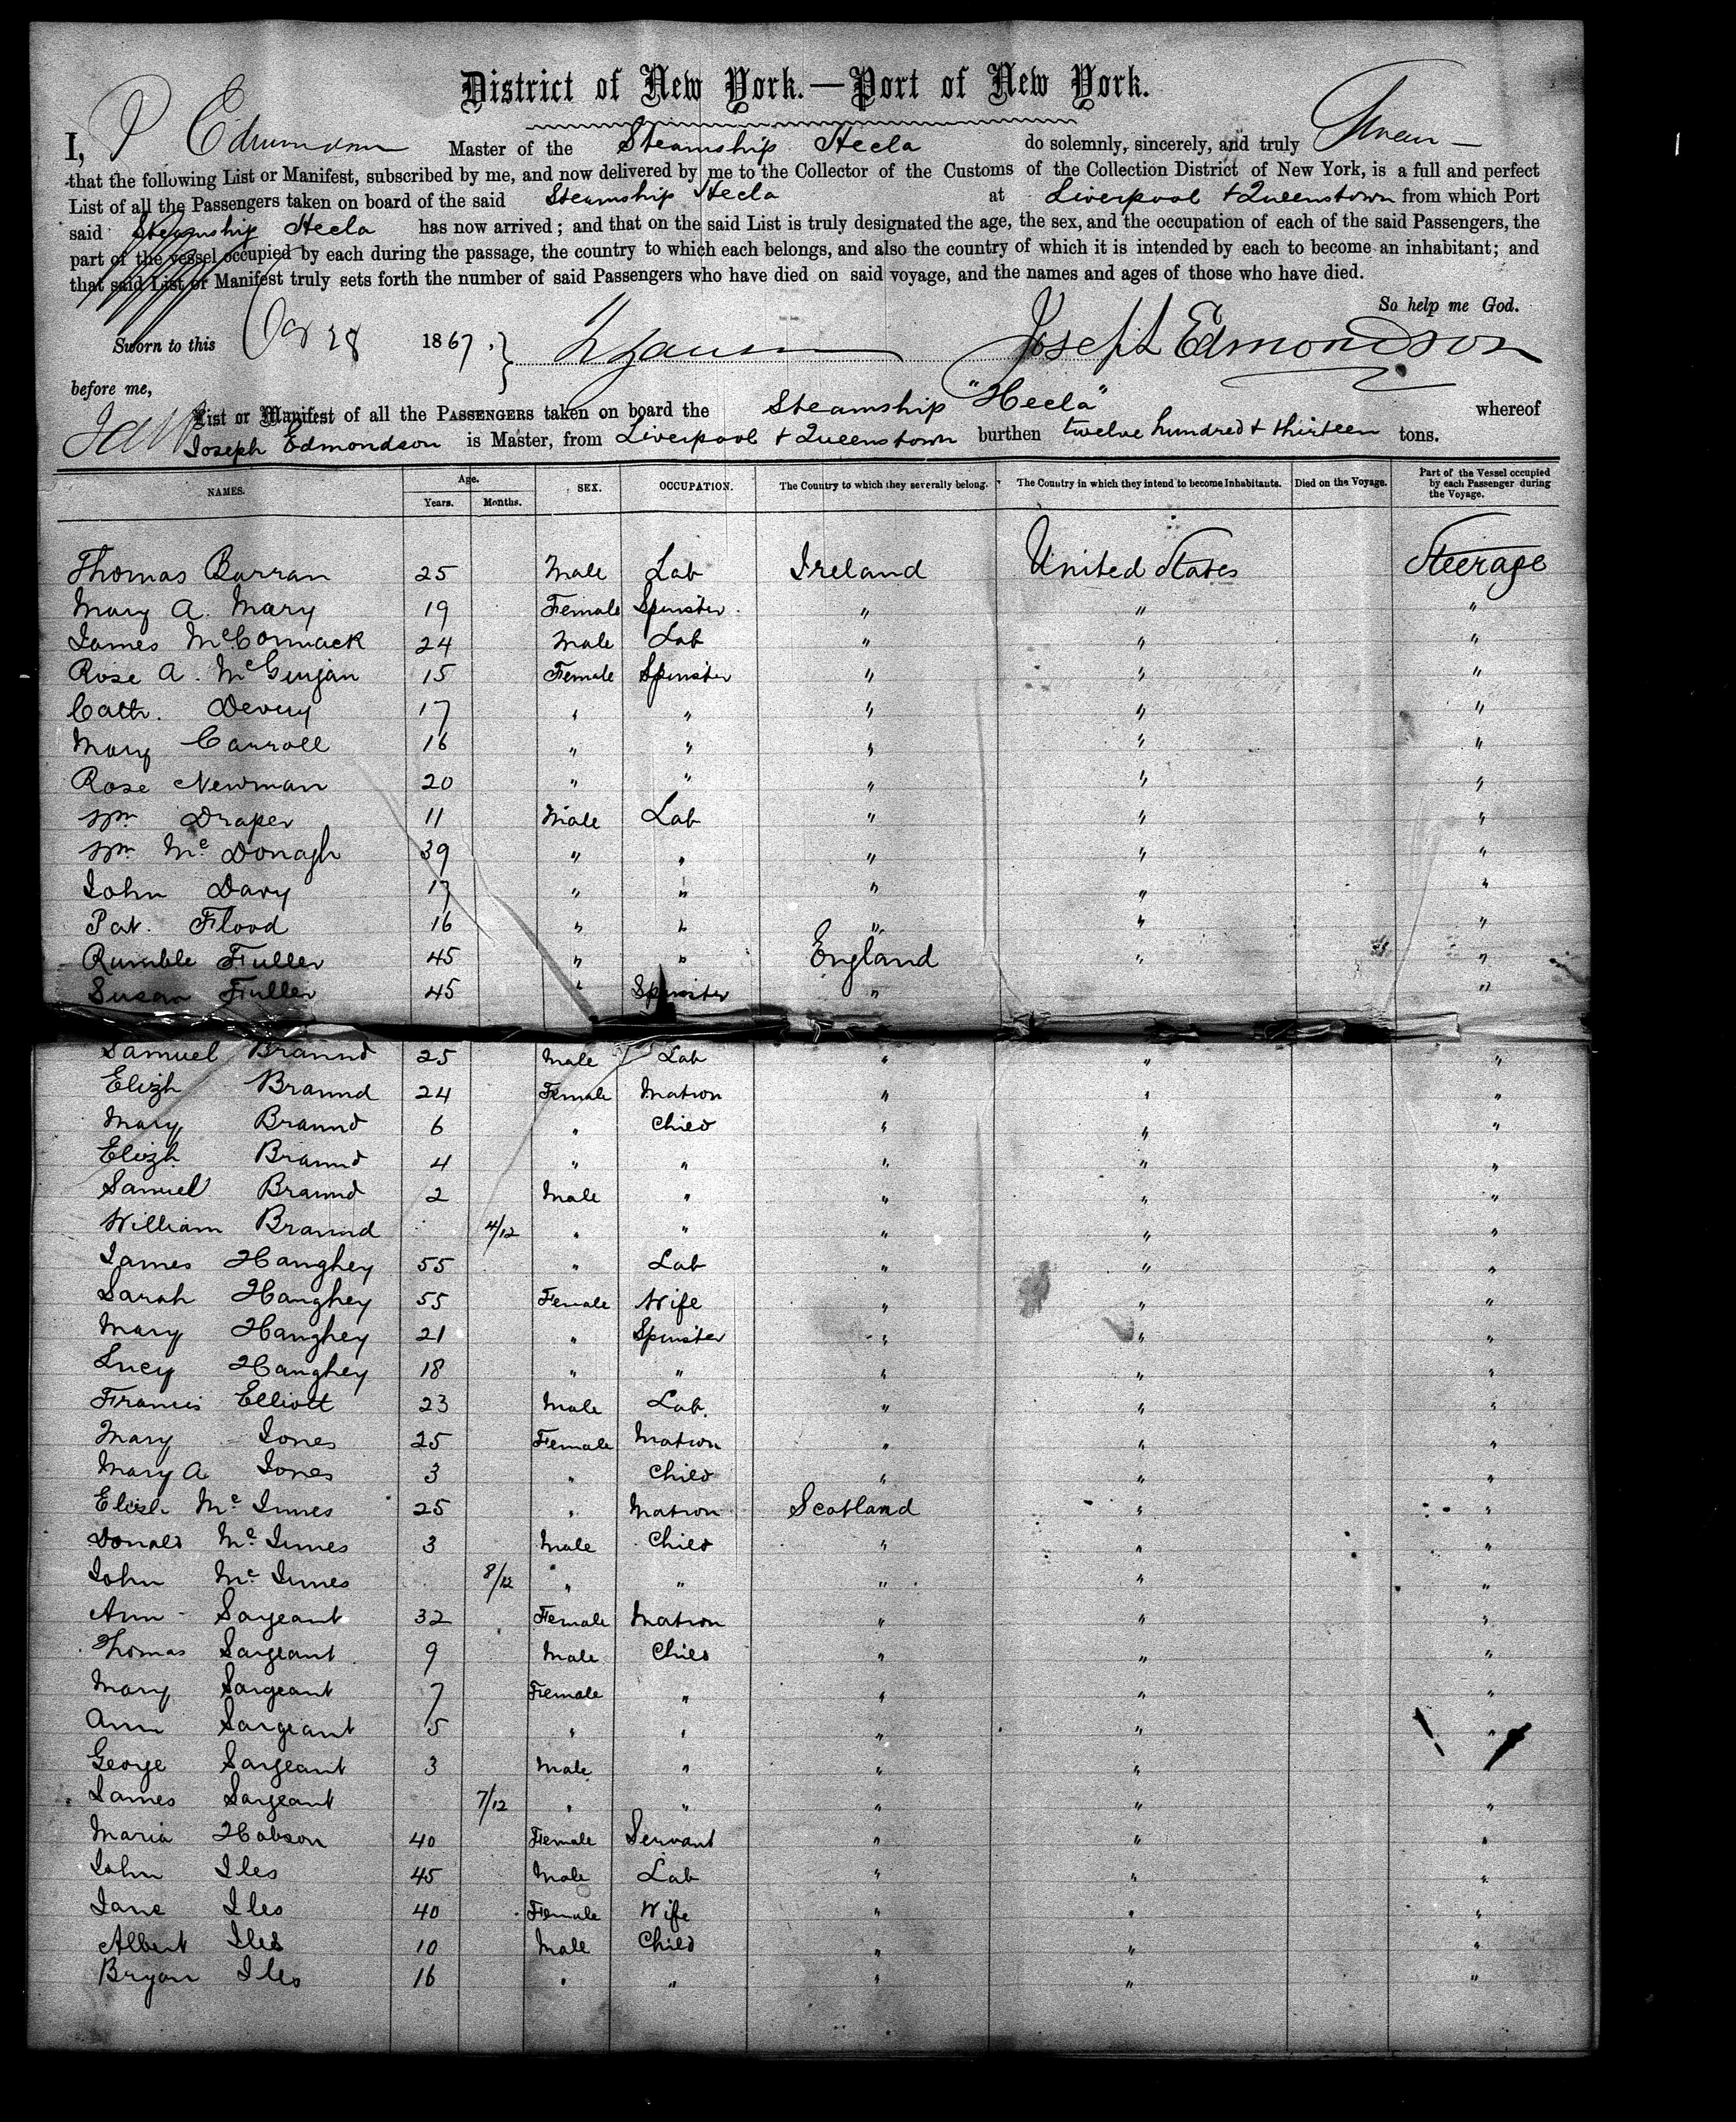 District of New York.—Port of New York.
I, J Edmondson Master of the Steamship Hecla do solemnly, sincerely, and truly Swear —
that the following List or Manifest, subscribed by me, and now delivered by me to the Collector of the Customs of the Collection District of New York, is a full and perfect
List of all the Passengers taken on board of the said Steamship Hecla at Liverpool + Queenstown from which Port
said Steamship Hecla has now arrived; and that on the said List is truly designated the age, the sex, and the occupation of each of the said Passengers, the
part of the vessel occupied by each during the passage, the country to which each belongs, and also the country of which it is intended by each to become an inhabitant; and
that said List or Manifest truly sets forth the number of said Passengers who have died on said voyage, and the names and ages of those who have died.
So help me God.
Sworn to this Oct 28 1867. Joseph Edmondson
before me,
List or Manifest of all the PASSENGERS taken on board the Steamship "Hecla" whereof
Joseph Edmondson is Master, from Liverpool + Queenstown burthen twelve hundred + thirteen tons.
NAMES. Age. Years. Months. SEX. OCCUPATION. The Country to which they severally belong. The Country in which they intend to become Inhabitants. Died on the Voyage. Part of the Vessel occupied by each Passenger during the Voyage.
Thomas Barran 25 Male Lab Ireland United States Steerage
Mary A. Mary 19 Female Spinster " " "
James McCormack 24 Male Lab " " "
Rose A. McGinjan 15 Female Spinster " " "
Cath. Devery 17 " " " " "
Mary Carroll 16 " " " " "
Rose Newman 20 " " " " "
Wm Draper 11 Male Lab " " "
Wm McDonagh 39 " " " " "
John Davy 17 " " " " "
Pat. Flood 16 " " " " "
Rumble Fuller 45 " " England " "
Susan Fuller 45 " Spinster " "
Samuel Braund 25 Male Lab " " "
Elizh Braund 24 Female Matron " " "
Mary Braund 6 " Child " " "
Elizh Braund 4 " " " " "
Samuel Braund 2 Male " " " "
William Braund 4/12 " " " " "
James Hanghey 55 " Lab " " "
Sarah Hanghey 55 Female Wife " " "
Mary Hanghey 21 " Spinster " " "
Lucy Hanghey 18 " " " " "
Francis Elliott 23 Male Lab. " " "
Mary Jones 25 Female Matron " " "
Mary A Jones 3 " Child " " "
Elizh McInnes 25 " Matron Scotland " "
Donald McInnes 3 Male Child " " "
John McInnes 8/12 " " " " "
Ann Sargeant 32 Female Matron " " "
Thomas Sargeant 9 Male Child " " "
Mary Sargeant 7 Female " " " "
Ann Sargeant 5 " " " " "
George Sargeant 3 Male " " " "
James Sargeant 7/12 " " " " "
Maria Hobson 40 Female Servant " " "
John Iles 45 Male Lab " " "
Jane Iles 40 Female Wife " " "
Albert Iles 10 Male Child " " "
Bryan Iles 16 " " " " "